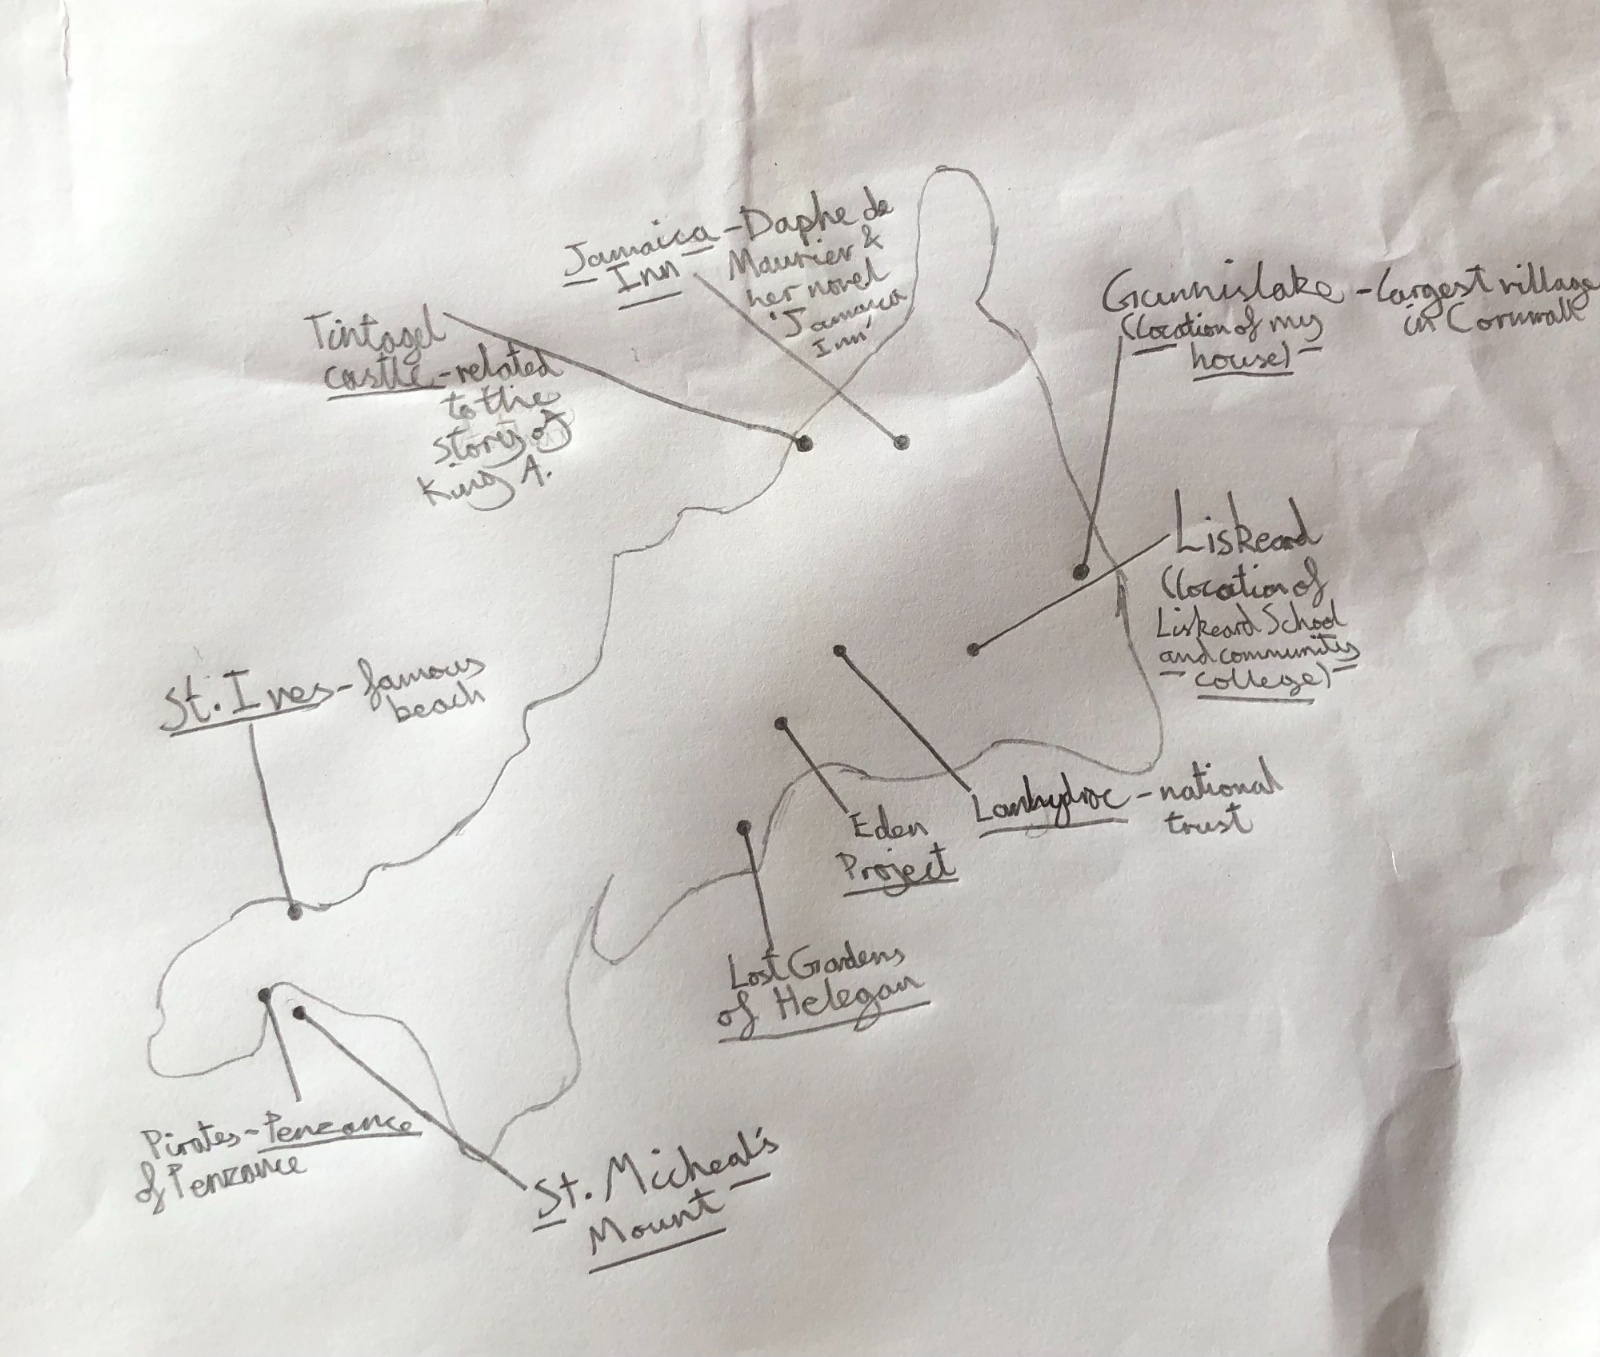 Jamaica - Daphe de
Inn Maurier &
her novel
'Jamaica
Inn'
Gunnislake - largest village
(location of my in Cornwall
house)
Tintagel
castle - related
to the
story of
King A.
Liskeard
(location of
Liskeard School
and community
college)
St. Ives - famous
beach
Lanhydroc - national
trust
Eden
Project
Lost Gardens
of Helegan
Pirates - Penzance
of Penzance
St. Micheal's
Mount